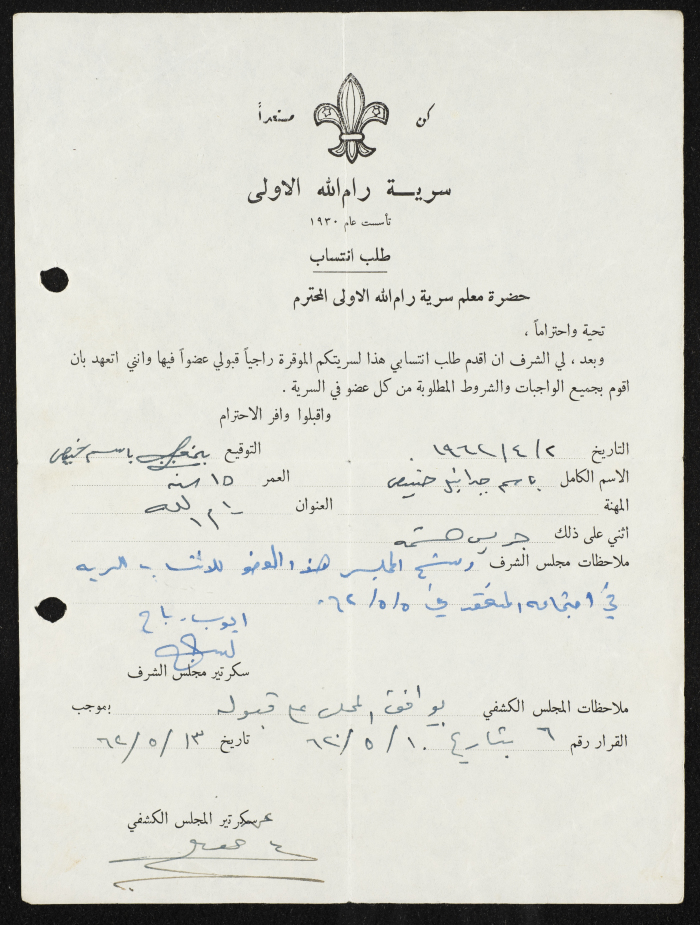 كن مستعداً
سرية رام الله الاولى
تأسست عام ١٩٣٠
طلب انتساب
حضرة معلم سرية رام الله الاولى المحترم
تحية واحتراماً ،
وبعد ، لي الشرف ان اقدم طلب انتسابي هذا لسريتكم الموقرة راجياً قبولي عضواً فيها وانني اتعهد بان
اقوم بجميع الواجبات والشروط المطلوبة من كل عضو في السرية .
واقبلوا وافر الاحترام
التاريخ ١٩٦٢/٤/٢ التوقيع باسم
الاسم الكامل باسم جبرائيل العمر ١٥ سنة
المهنة العنوان رام الله
اثني على ذلك جريس
ملاحظات مجلس الشرف المجلس هذا العضو للانتساب
في اجتماعه المنعقد في ٦٢/٥/٥.
ايوب رباح
سكرتير مجلس الشرف
ملاحظات المجلس الكشفي يوافق المجلس على قبوله بموجب
القرار رقم ٦ بتاريخ ٦٢/٥/١٠ تاريخ ٦٢/٥/١٣
سكرتير المجلس الكشفي